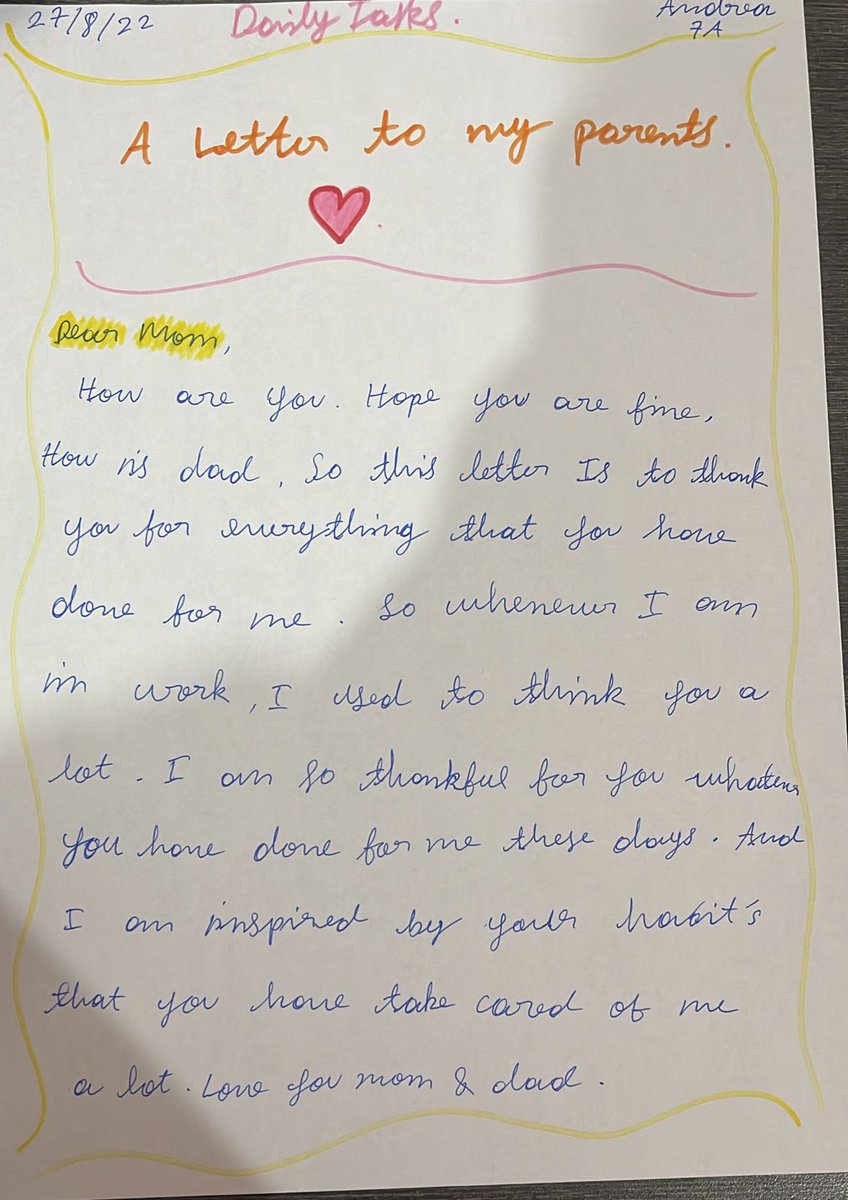 27/8/22 Daily Talks. Andrea
7A
A Letter to my parents.
Dear Mom,
How are you. Hope you are fine,
How is dad, So this letter Is to thank
you for everything that you have
done for me. So whenever I am
in work, I used to think you a
lot. I am so thankful for you whatever
you have done for me these days. And
I am inspired by your habit's
that you have take cared of me
a lot. Love you mom & dad.